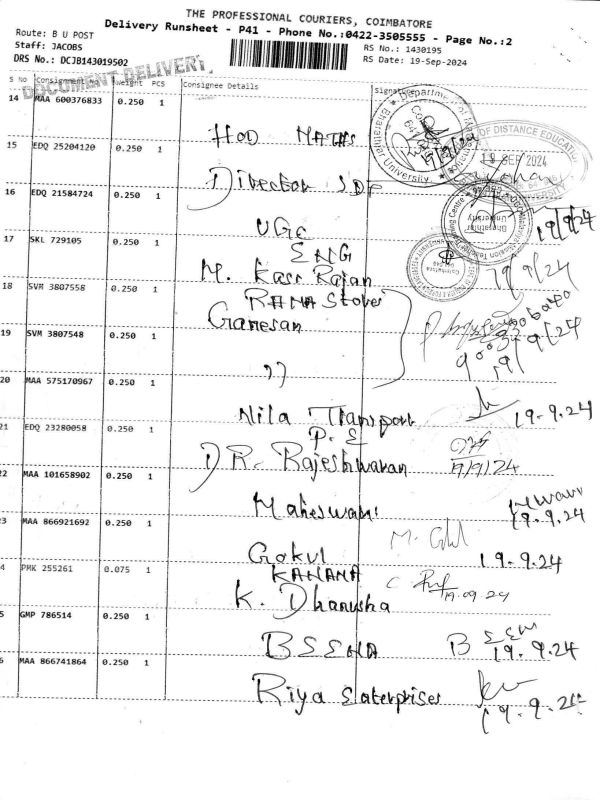 THE PROFESSIONAL COURIERS, COIMBATORE
Delivery Runsheet - P41 - Phone No.:0422-3505555 - Page No.:2
Route: B U POST
Staff: JACOBS
DRS No.: DCJB143019502
RS No.: 1430195
RS Date: 19-Sep-2024
DOCUMENT DELIVERY
S No Consignment No Weight PCS Consignee Details Signature
14 MAA 600376833 0.250 1 HOD MATHS 19/9/24
15 EDQ 25204120 0.250 1 Director SDE
OF DISTANCE EDUCATION
19 SEP 2024
16 EDQ 21584724 0.250 1 UGC 19/9/24
Bharathiar University
17 SKL 729105 0.250 1 ENG
M. Kasi Rajan 19/9/24
18 SVM 3807558 0.250 1 RANA Stores
Ganesan 19/9/24
19 SVM 3807548 0.250 1 ,,
20 MAA 575170967 0.250 1 Nila Transport 19.9.24
21 EDQ 23280058 0.250 1 P.E
DR. Rajeshwaran 19/9/24
22 MAA 101658902 0.250 1 Maheswari 19.9.24
23 MAA 866921692 0.250 1 Gokul M. 19.9.24
24 PMK 255261 0.075 1 KANANA
K. Dhanusha 19.09.24
25 GMP 786514 0.250 1 BSEENA B SEEN 19.9.24
26 MAA 866741864 0.250 1 Riya Enterprises 19.9.24